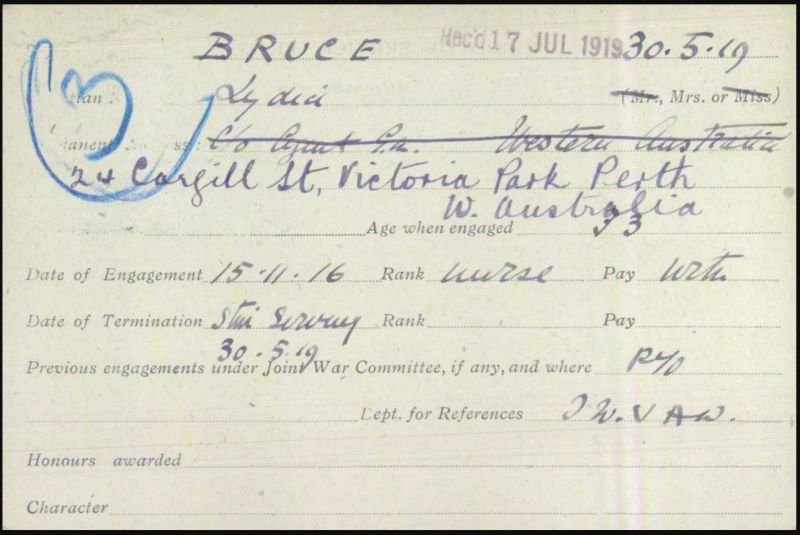 BRUCE Rec'd 17 JUL 1919 30.5.19
Lydia (Mr., Mrs. or Miss)
c/o Agent Western Australia
24 Cargill St, Victoria Park Perth
W. Australia
Age when engaged 33
Date of Engagement 15.11.16 Rank Nurse Pay
Date of Termination Still Serving Rank Pay
30.5.19
Previous engagements under Joint War Committee, if any, and where
Dept. for References
Honours awarded
Character